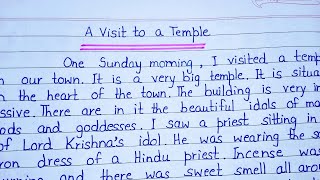 A Visit to a Temple
One Sunday morning, I visited a temp
our town. It is a very big temple. It is situa
the heart of the town. The building is very im
ssive. There are in it the beautiful idols of ma
ods and goddesses. I saw a priest sitting in
of Lord Krishna's idol. He was wearing the sa
ron dress of a Hindu priest. Incense was
and there was sweet smell all aro